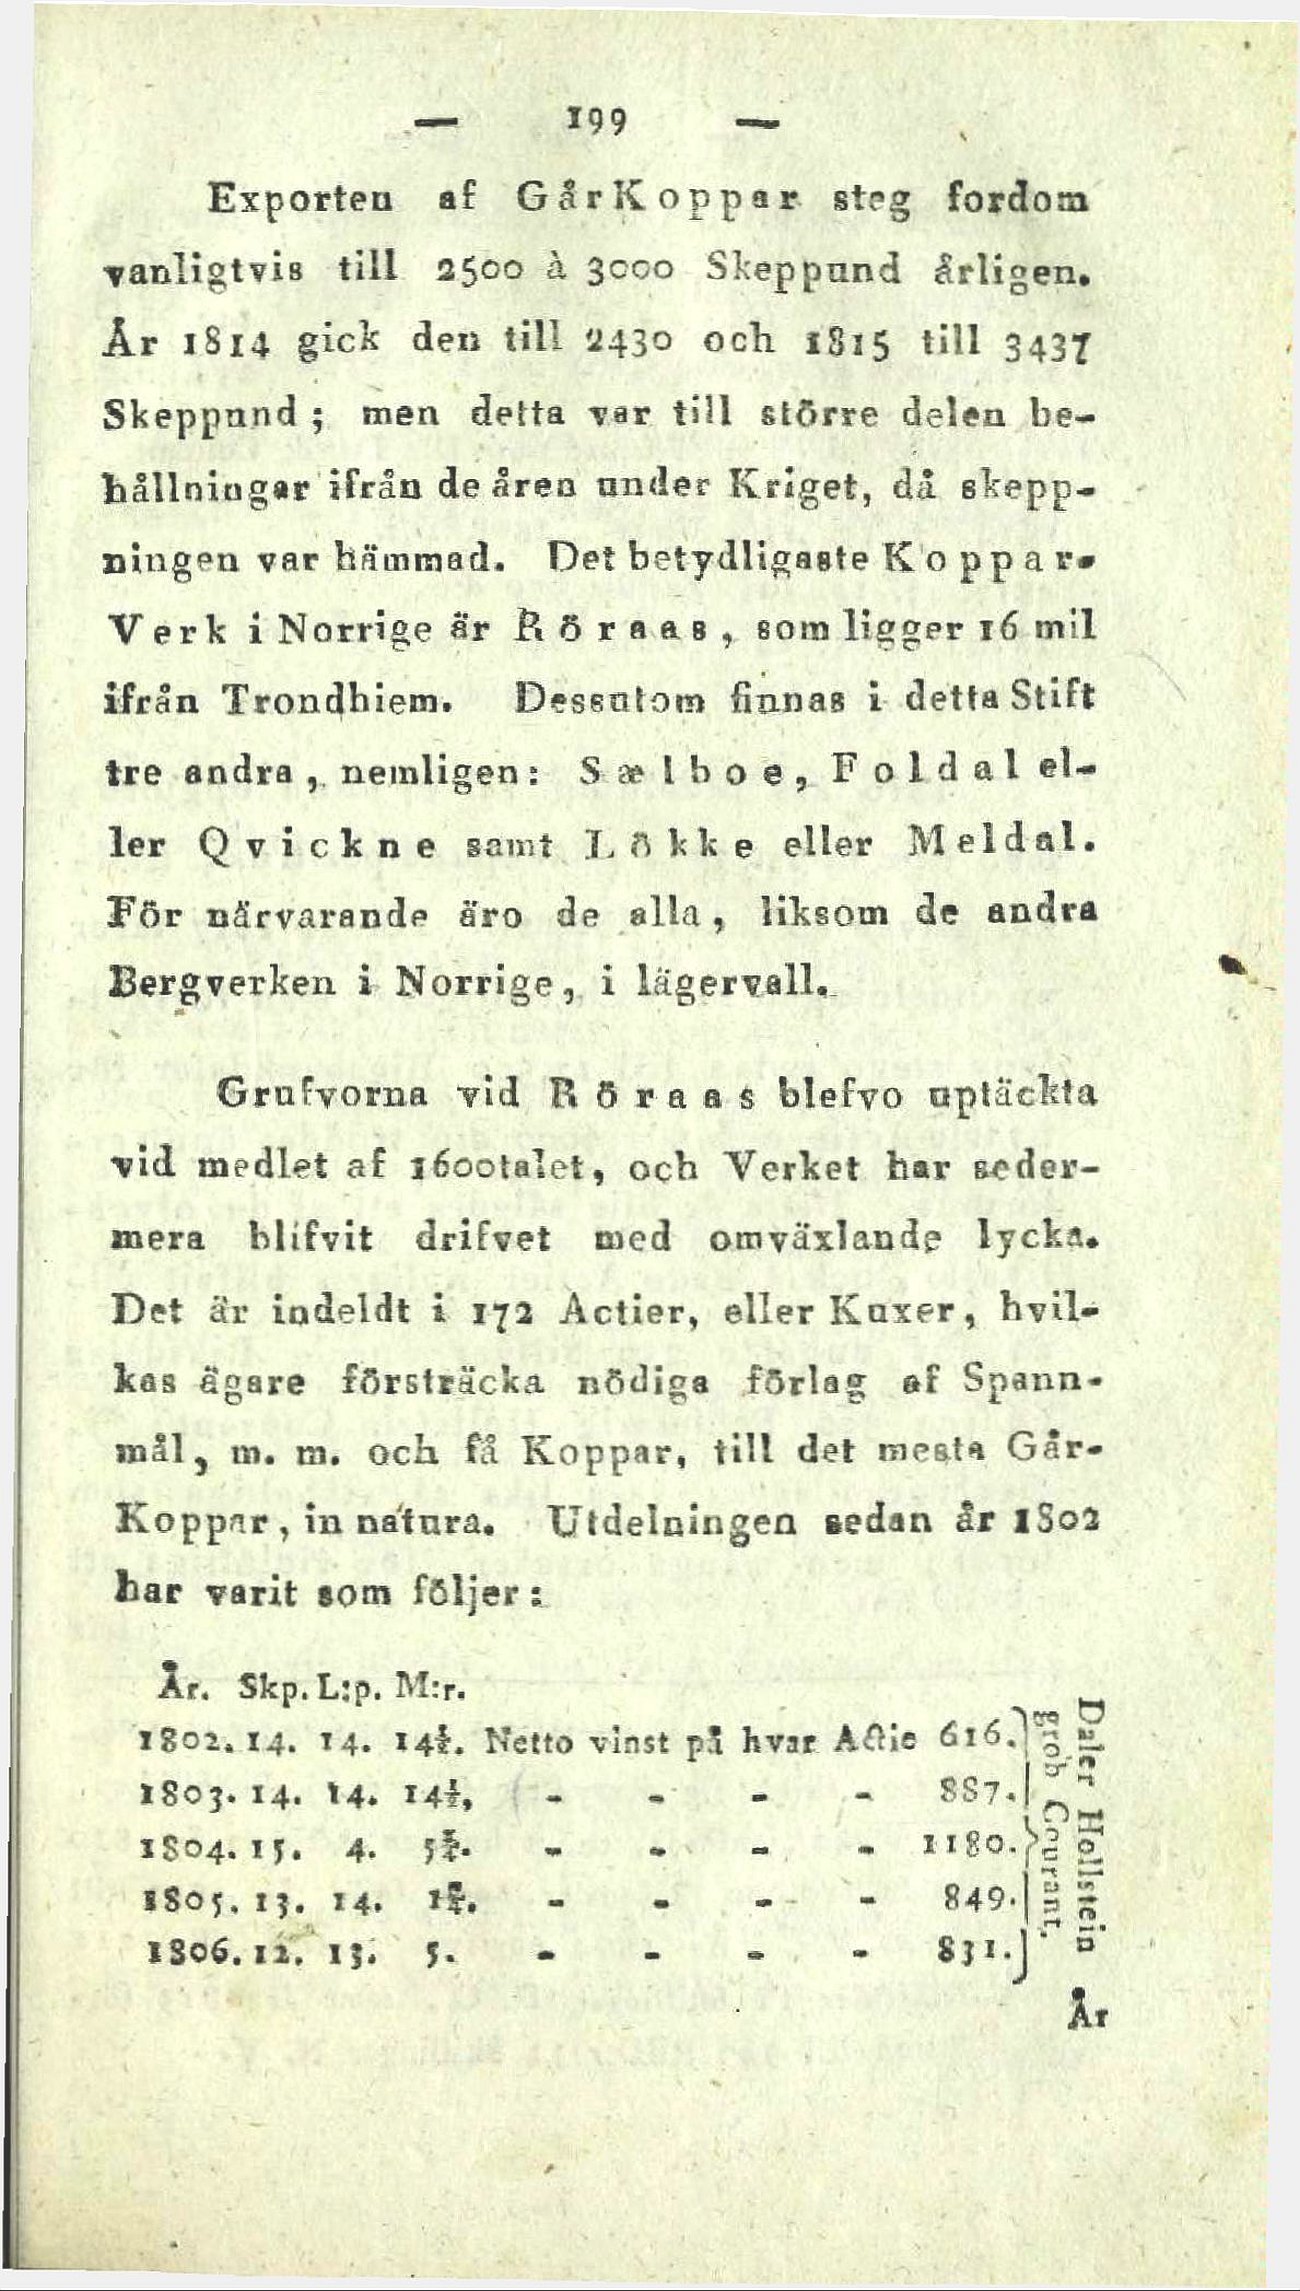 — 199 —
Exporten af GårKoppar steg fordom
vanligtvis till 2500 à 3000 Skeppund årligen.
År 1814 gick den till 2430 och 1815 till 3437
Skeppund; men detta var till större delen be-
hållningar ifrån de åren under Kriget, då skepp-
ningen var hämmad. Det betydligaste Koppar-
Verk i Norrige är Röraas, som ligger 16 mil
ifrån Trondhiem. Dessutom finnas i detta Stift
tre andra, nemligen: Sælboe, Foldal el-
ler Qvickne samt Lökke eller Meldal.
För närvarande äro de alla, liksom de andra
Bergverken i Norrige, i lägervall.
Grufvorna vid Röraas blefvo uptäckta
vid medlet af 1600talet, och Verket har seder-
mera blifvit drifvet med omväxlande lycka.
Det är indeldt i 172 Actier, eller Kuxer, hvil-
kas ägare försträcka nödiga förlag af Spann-
mål, m. m. och få Koppar, till det mesta Går-
Koppar, in natura. Utdelningen sedan år 1802
har varit som följer:
År. Skp. L:p. M:r.
1802. 14. 14. 14½. Netto vinst på hvar Actie 616.
1803. 14. 14. 14½, - - - - 887.
1804. 15. 4. - - - - 1180.
1805. 13. 14. - - - - 849.
1806. 12. 13. 5. - - - - 831.
Daler Hollstein
grob Courant.
År